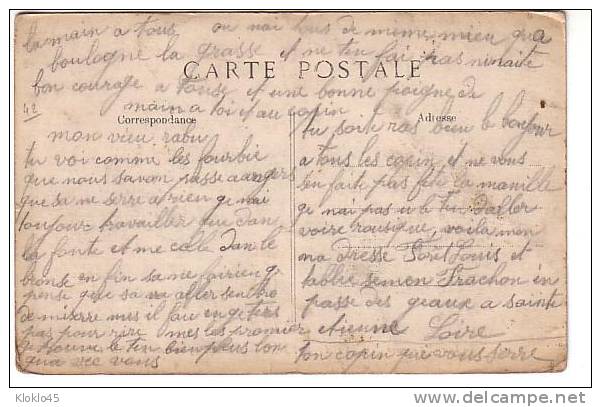 la main a tous ou nai tous de meme mieu qua
boulogne la grasse et ne ten fai pas ninaite
CARTE POSTALE
bon courage a touse et une bonne poigne de
42
main a toi et au copin
Correspondance
Adresse
mon vieu rabu
tu voi comme les fourbie
que nous savon passe a angers
que sa ne serre a rien ge nai
toujour travailler que dan
la fonte et me cella dan le
bronse en fin sa ne fai rien g
pense que sa va aller
de miserre mis il fau en geters
pas pour rire mes las premier
ge trouve le ten bien plus lon
qua vec vous
tu soite ras bien le bonjour
a tous les copin et ne vous
en faite plas fete la manille
ge nai pas u le ten daller
voire rousique, voila mon
na dresse Foret Louis et
tablisemen Frachon in
passe des geaux a sainte
etienne Loire
ton copin que vous serre
Kloklo45
www.delcampe.net